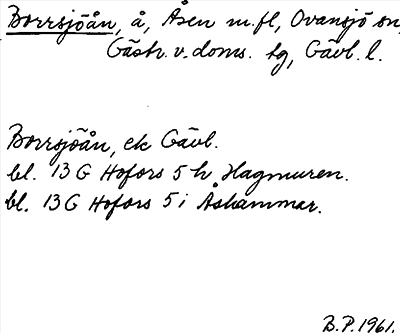 Borrsjöån, å, Åsen m.fl, Ovansjö sn,
Gästr. v. doms. tg, Gävl. l.
Borrsjöån, ek Gävl.
bl. 13 G Hofors 5 h Hagmuren.
bl. 13 G Hofors 5 i Åshammar.
B.P. 1961.